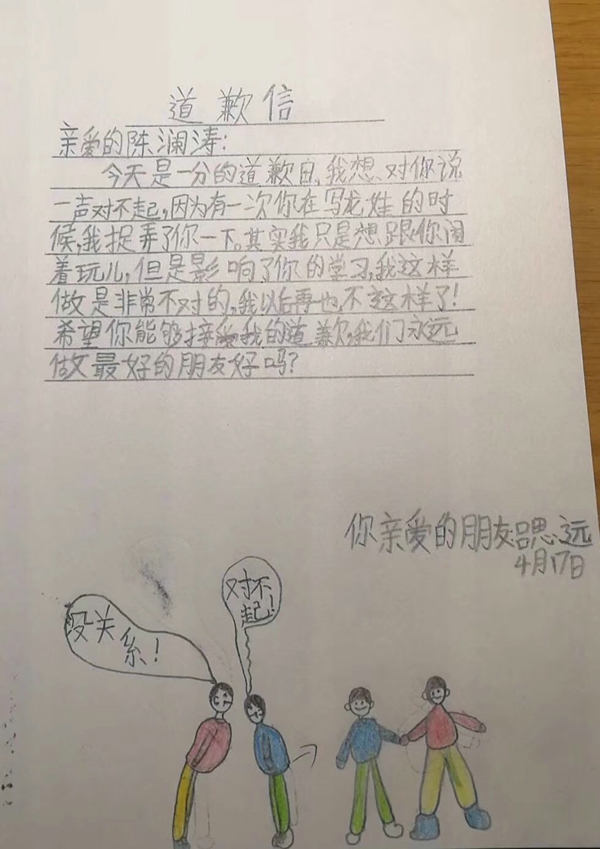 道歉信
亲爱的陈澜涛:
今天是一分的道歉日,我想对你说
一声对不起,因为有一次你在写龙娃的时
候,我捉弄了你一下。其实我只是想跟你闹
着玩儿,但是影响了你的学习,我这样
做是非常不对的,我以后再也不这样了!
希望你能够接受我的道歉,我们永远
做最好的朋友好吗?
你亲爱的朋友:吕思远
4月17日
对不
起!
没关
系!